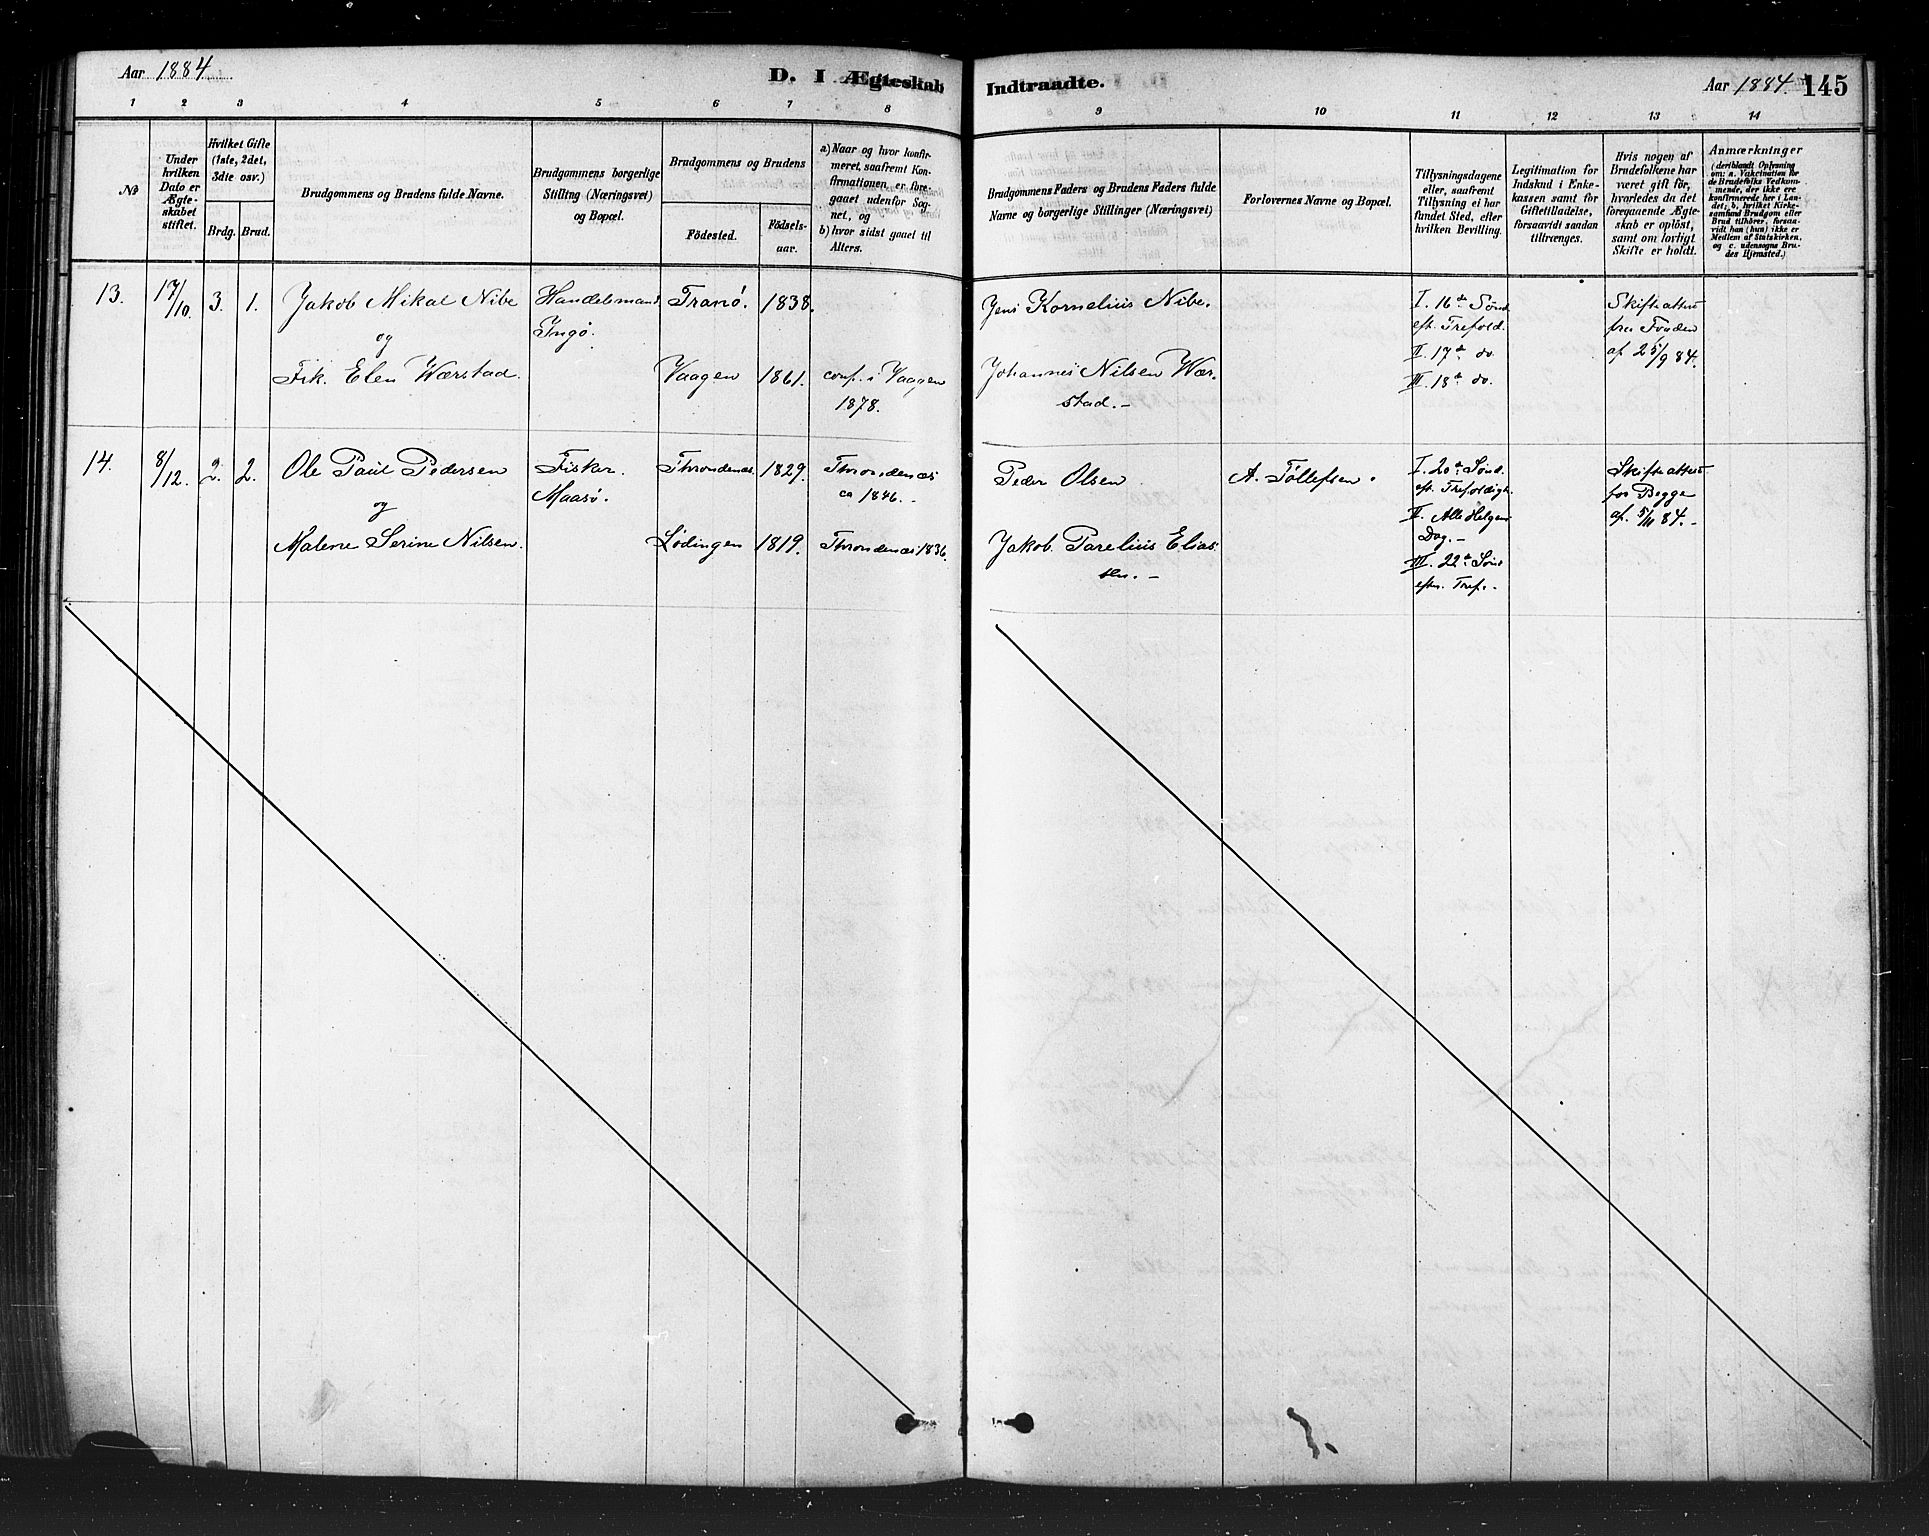 Aar 1884
D. I Ægteskab
Indtraadte.
Aar 1884. 145
1 2 3 4 5 6 7 8 9 10 11 12 13 14
No
Under
hvilken
Dato er
Ægte-
skabet
stiftet.
Hvilket Gifte
(1ste, 2det,
3die osv.)
Brdg. Brud.
Brudgommens og Brudens fulde Navne.
Brudgommens borgerlige
Stilling (Næringsvei)
og Bopæl.
Brudgommens og Brudens
Födested.
Födsels-
aar.
a) Naar og hvor konfir-
meret, saafremt Kon-
firmationen er fore-
gaaet udenfor Sog-
net, og
b) hvor sidst gaaet til
Alters.
Brudgommens Faders og Brudens Faders fulde
Navne og borgerlige Stillinger (Næringsvei)
Forlovernes Navne og Bopæl.
Tillysningsdagene
eller, saafremt
Tillysning ei har
fundet Sted, efter
hvilken Bevilling.
Legitimation for
Indskud i Enke-
kassen samt for
Giftetilladelse,
forsaavidt saadan
tiltrænges.
Hvis nogen af
Brudefolkene har
været gift för,
hvorledes da det
foregaaende Ægte-
skab er oplöst,
samt om lovligt
Skifte er holdt.
Anmærkninger
(deriblandt Oplysning
om: a. Vakcination for
de Brudefolks Vedkom-
mende, der ikke ere
konfirmerede her i Lan-
det; b. hvilket Kirke-
samfund Brudgom eller
Brud tilhörer, forsaa-
vidt han (hun) ikke er
Medlem af Statskirken,
og c. udensogns Bru-
des Hjemsted.)
13. 17/10. 3. 1. Jakob Mikal Nibe
og
Frk. Elen Wærstad.
Handelsmand
Ingø.
Tranö. 1838.
Vaagen 1861. conf. i Vaagen
1878.
Jens Kornelius Nibe.
Johannes Nilsen Wær-
stad. -
I. 16de Sønd.
eft. Trefold.
II. 17de do.
III. 18de do.
Skifteattest
fra Fogden
af 25/9 84.
14. 8/12. 2. 2. Ole Paul Pedersen
og
Malene Serine Nilsen.
Fisker.
Maasö.
Throndenæs. 1829. Throndenæs
ca 1846. -
Lødingen 1819. Throndenæs 1836.
Peder Olsen
Jakob Parelius Elias-
sen. -
A. Tollefsen.
I. 20de Sønd.
eft. Trefoldigh.
II. Alle Helgens
Dag. -
III. 22de Sønd
efter. Tref. -
Skifteattest
for Begge
af. 5/11 84. -